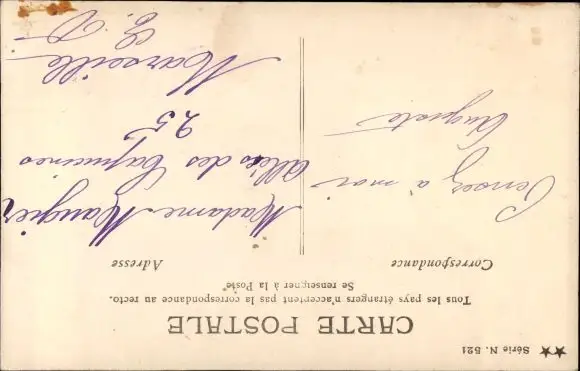 ★★ Série N. 521
CARTE POSTALE
Tous les pays étrangers n'acceptent pas la correspondance au recto.
Se renseigner à la Poste
Correspondance
Adresse
Pensez à moi
Auguste
Madame Maugier
Allées des Capucines
25
Marseille
B. D